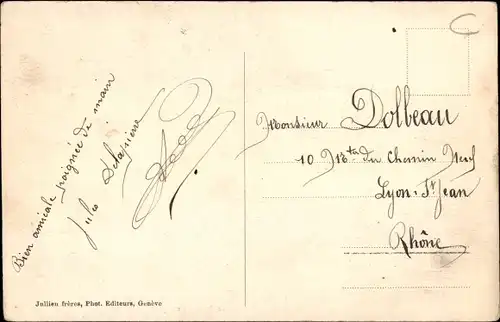 Bien amicale poignée de main
Jules Delapierre
Monsieur Dolbeau
10 Mtée du Chemin Neuf
Lyon-St Jean
Rhône
Jullien frères, Phot. Editeurs, Genève